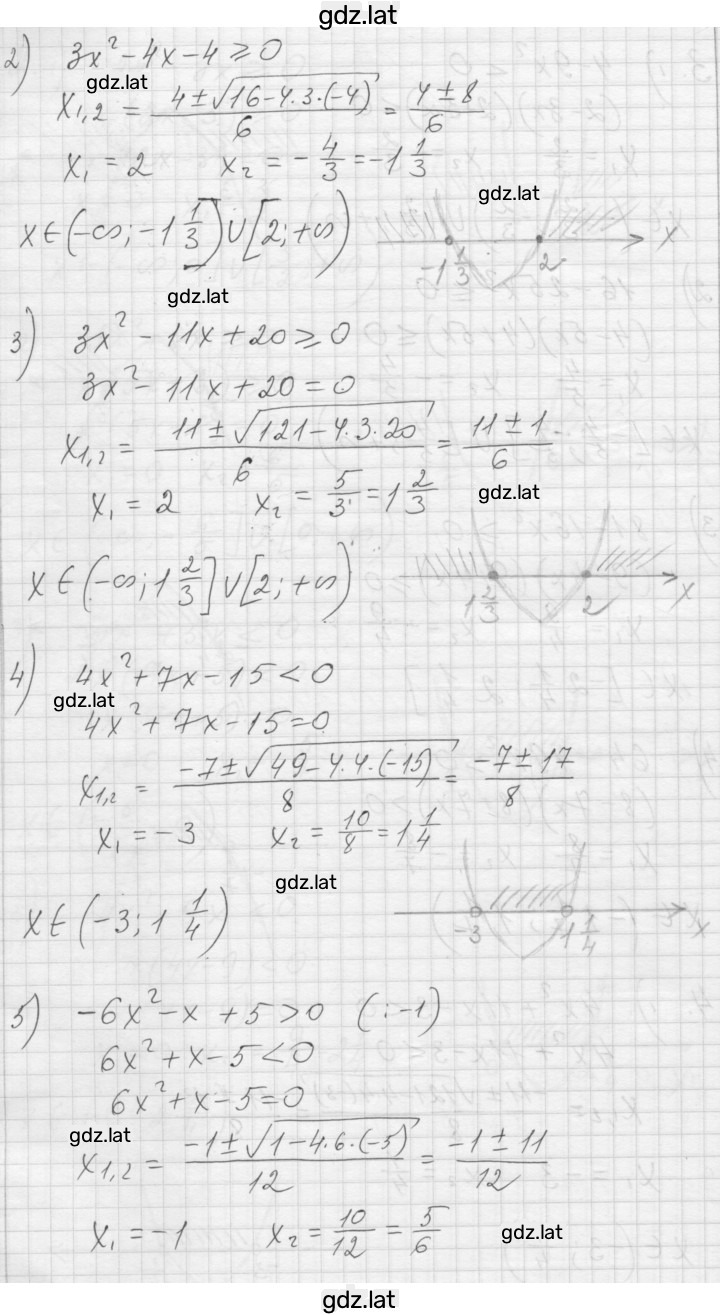 gdz.lat
2) 3x² - 4x - 4 ≥ 0
gdz.lat
x₁,₂ = (4 ± √(16 - 4·3·(-4)))/6 = (4 ± 8)/6
x₁ = 2 x₂ = -4/3 = -1 1/3
gdz.lat
x ∈ (-∞; -1 1/3] ∪ [2; +∞) -1 1/3 2 x
gdz.lat
3) 3x² - 11x + 20 ≥ 0
3x² - 11x + 20 = 0
x₁,₂ = (11 ± √(121 - 4·3·20))/6 = (11 ± 1)/6
x₁ = 2 x₂ = 5/3 = 1 2/3 gdz.lat
x ∈ (-∞; 1 2/3] ∪ [2; +∞) 1 2/3 2 x
4) 4x² + 7x - 15 < 0
gdz.lat
4x² + 7x - 15 = 0
x₁,₂ = (-7 ± √(49 - 4·4·(-15)))/8 = (-7 ± 17)/8
x₁ = -3 x₂ = 10/8 = 1 1/4
gdz.lat
x ∈ (-3; 1 1/4) -3 1 1/4 x
5) -6x² - x + 5 > 0 (: -1)
6x² + x - 5 < 0
6x² + x - 5 = 0
gdz.lat
x₁,₂ = (-1 ± √(1 - 4·6·(-5)))/12 = (-1 ± 11)/12
x₁ = -1 x₂ = 10/12 = 5/6 gdz.lat
gdz.lat